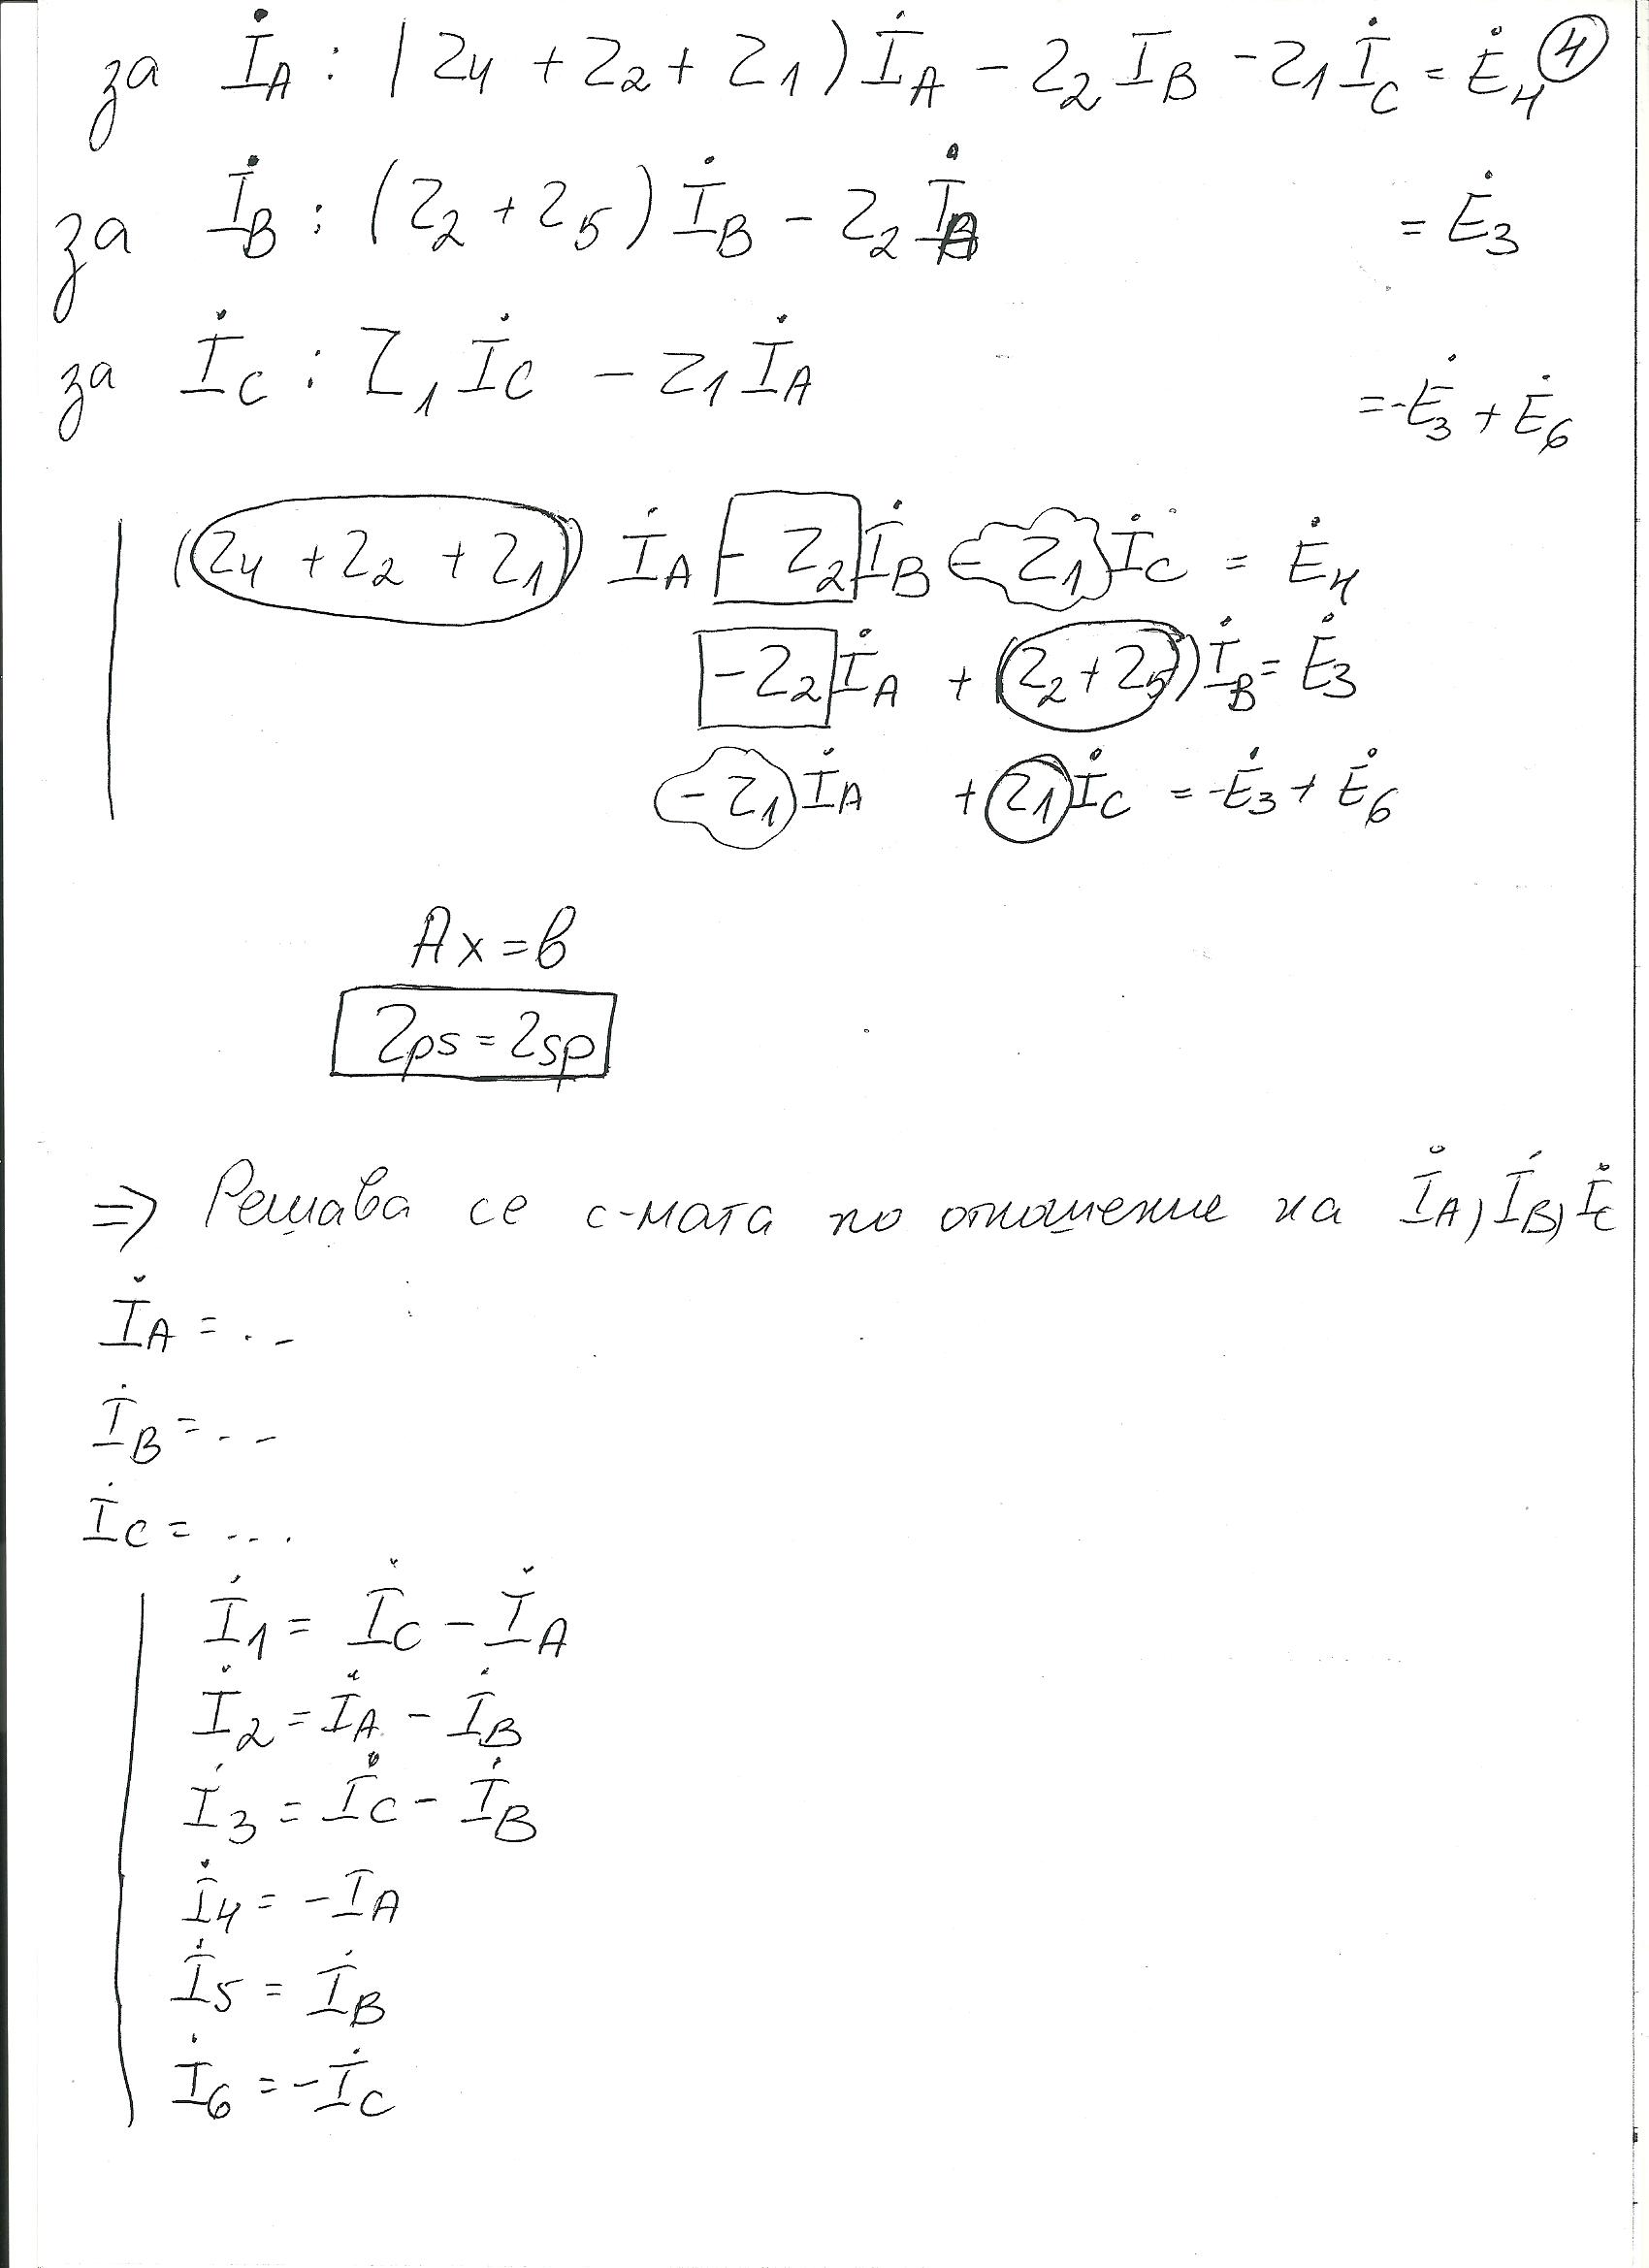 за İA : (Z4 + Z2 + Z1) İA - Z2 IB - Z1 İC = Ė4 ④
за İB : (Z2 + Z5) İB - Z2 İA = Ė3
за İC : Z1 İC - Z1 İA = -Ė3 + Ė6
(Z4 + Z2 + Z1) İA - Z2 İB - Z1 İC = Ė4
-Z2 İA + (Z2 + Z5) İB = Ė3
-Z1 İA + Z1 İC = -Ė3 + Ė6
Ax = b
Zps = Zsp
=> Решава се с-мата по отношение на İA, İB, İC
İA = ..
İB = ...
İC = ...
İ1 = İC - İA
İ2 = İA - İB
İ3 = İC - İB
İ4 = -IA
İ5 = İB
İ6 = -İC